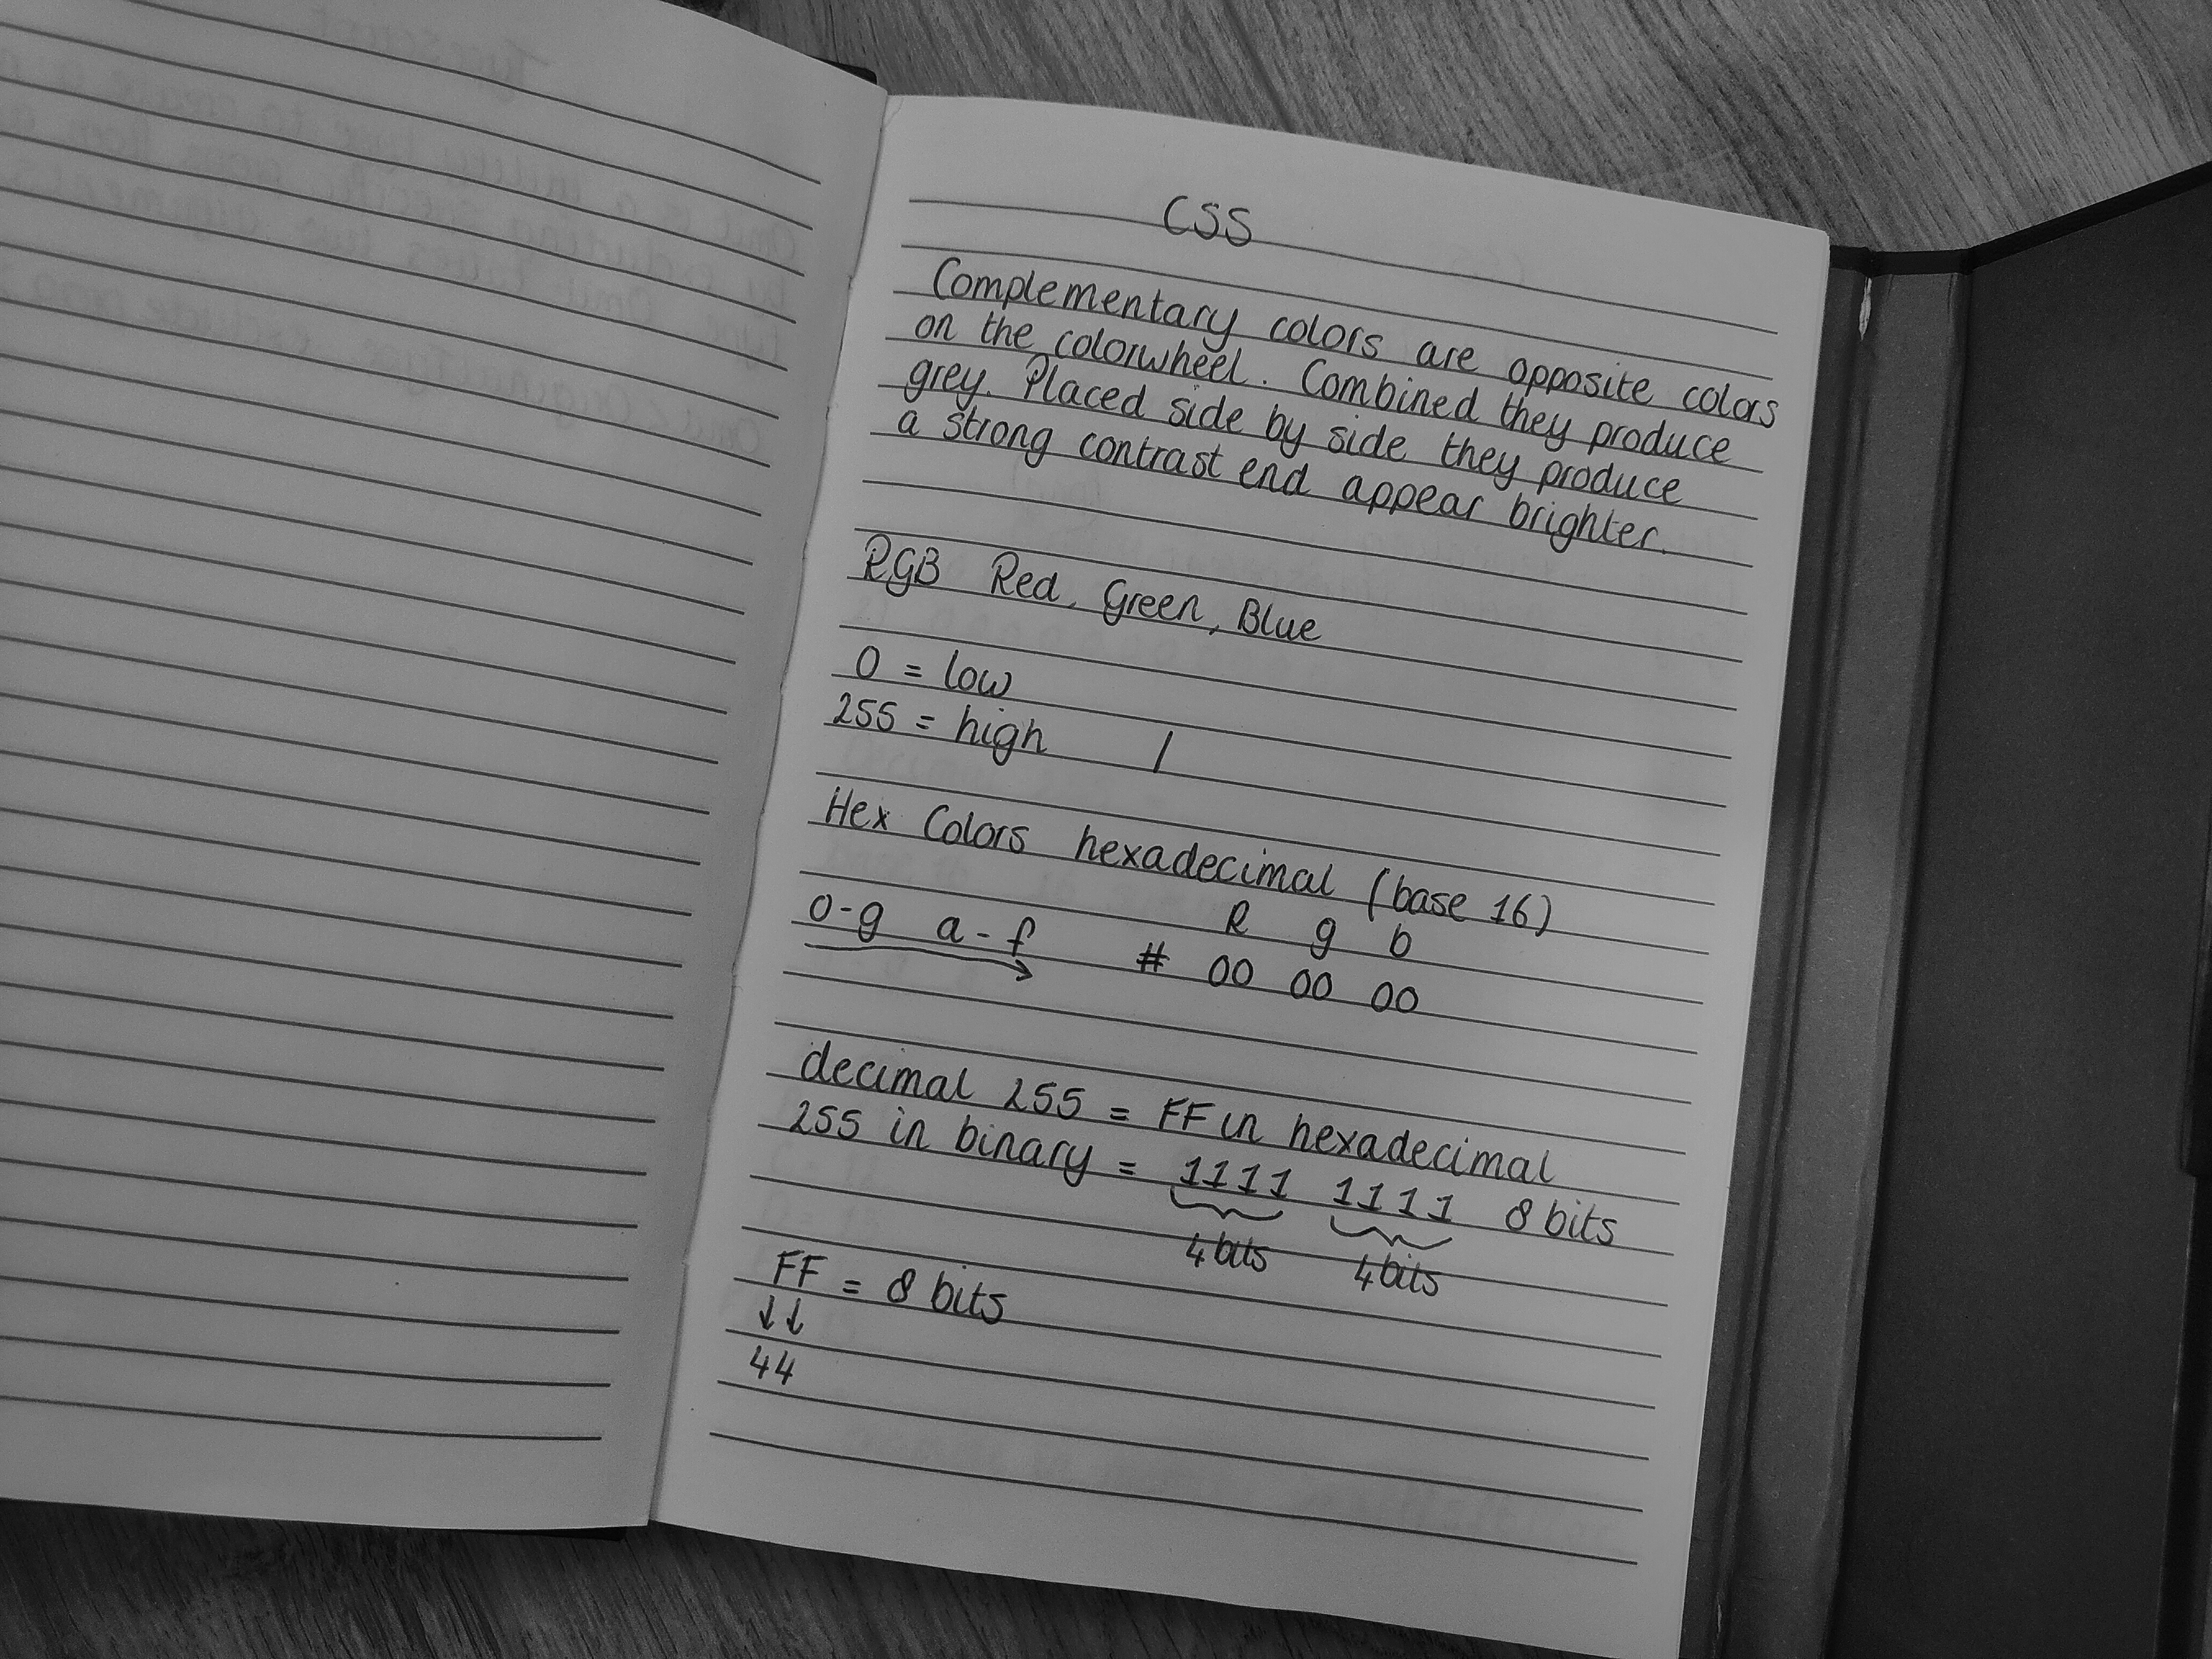 CSS
Complementary colors are opposite colors
on the colorwheel. Combined they produce
grey. Placed side by side they produce
a strong contrast end appear brighter.
RGB Red, Green, Blue
0 = low
255 = high /
Hex Colors hexadecimal (base 16)
R g b
0-g a-f # 00 00 00
decimal 255 = FF in hexadecimal
255 in binary = 1111 1111 8 bits
4 bits 4 bits
FF = 8 bits
↓↓
44